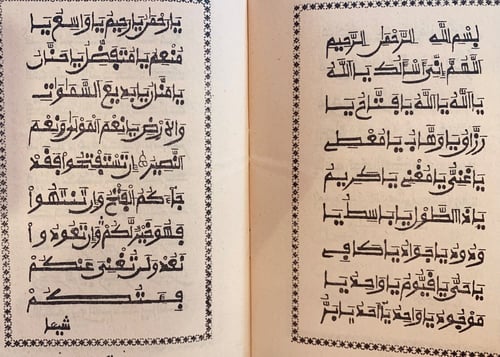 بسم الله الرحمن الرحيم
اللهم إني أسألك يا الله
يا الله يا الله يا فتاح يا
رزاق يا وهاب يا معطي
يا غني يا مغني يا كريم
يا ذا الطول يا باسط يا
ودود يا جواد يا كافي
يا حي يا قيوم يا واحد يا
موجود يا واحد يا أحد يا بر
يا رحمن يا رحيم يا واسع يا
منعم يا متفضل يا حنان
يا منان يا بديع السموت
والأرض يا نعم المولى ونعم
النصير إن تستفتحوا فقد
جاءكم الفتح وإن تنتهوا
فهو خير لكم وإن تعودوا
نعد ولن تغني عنكم
فئتكم
شيئا